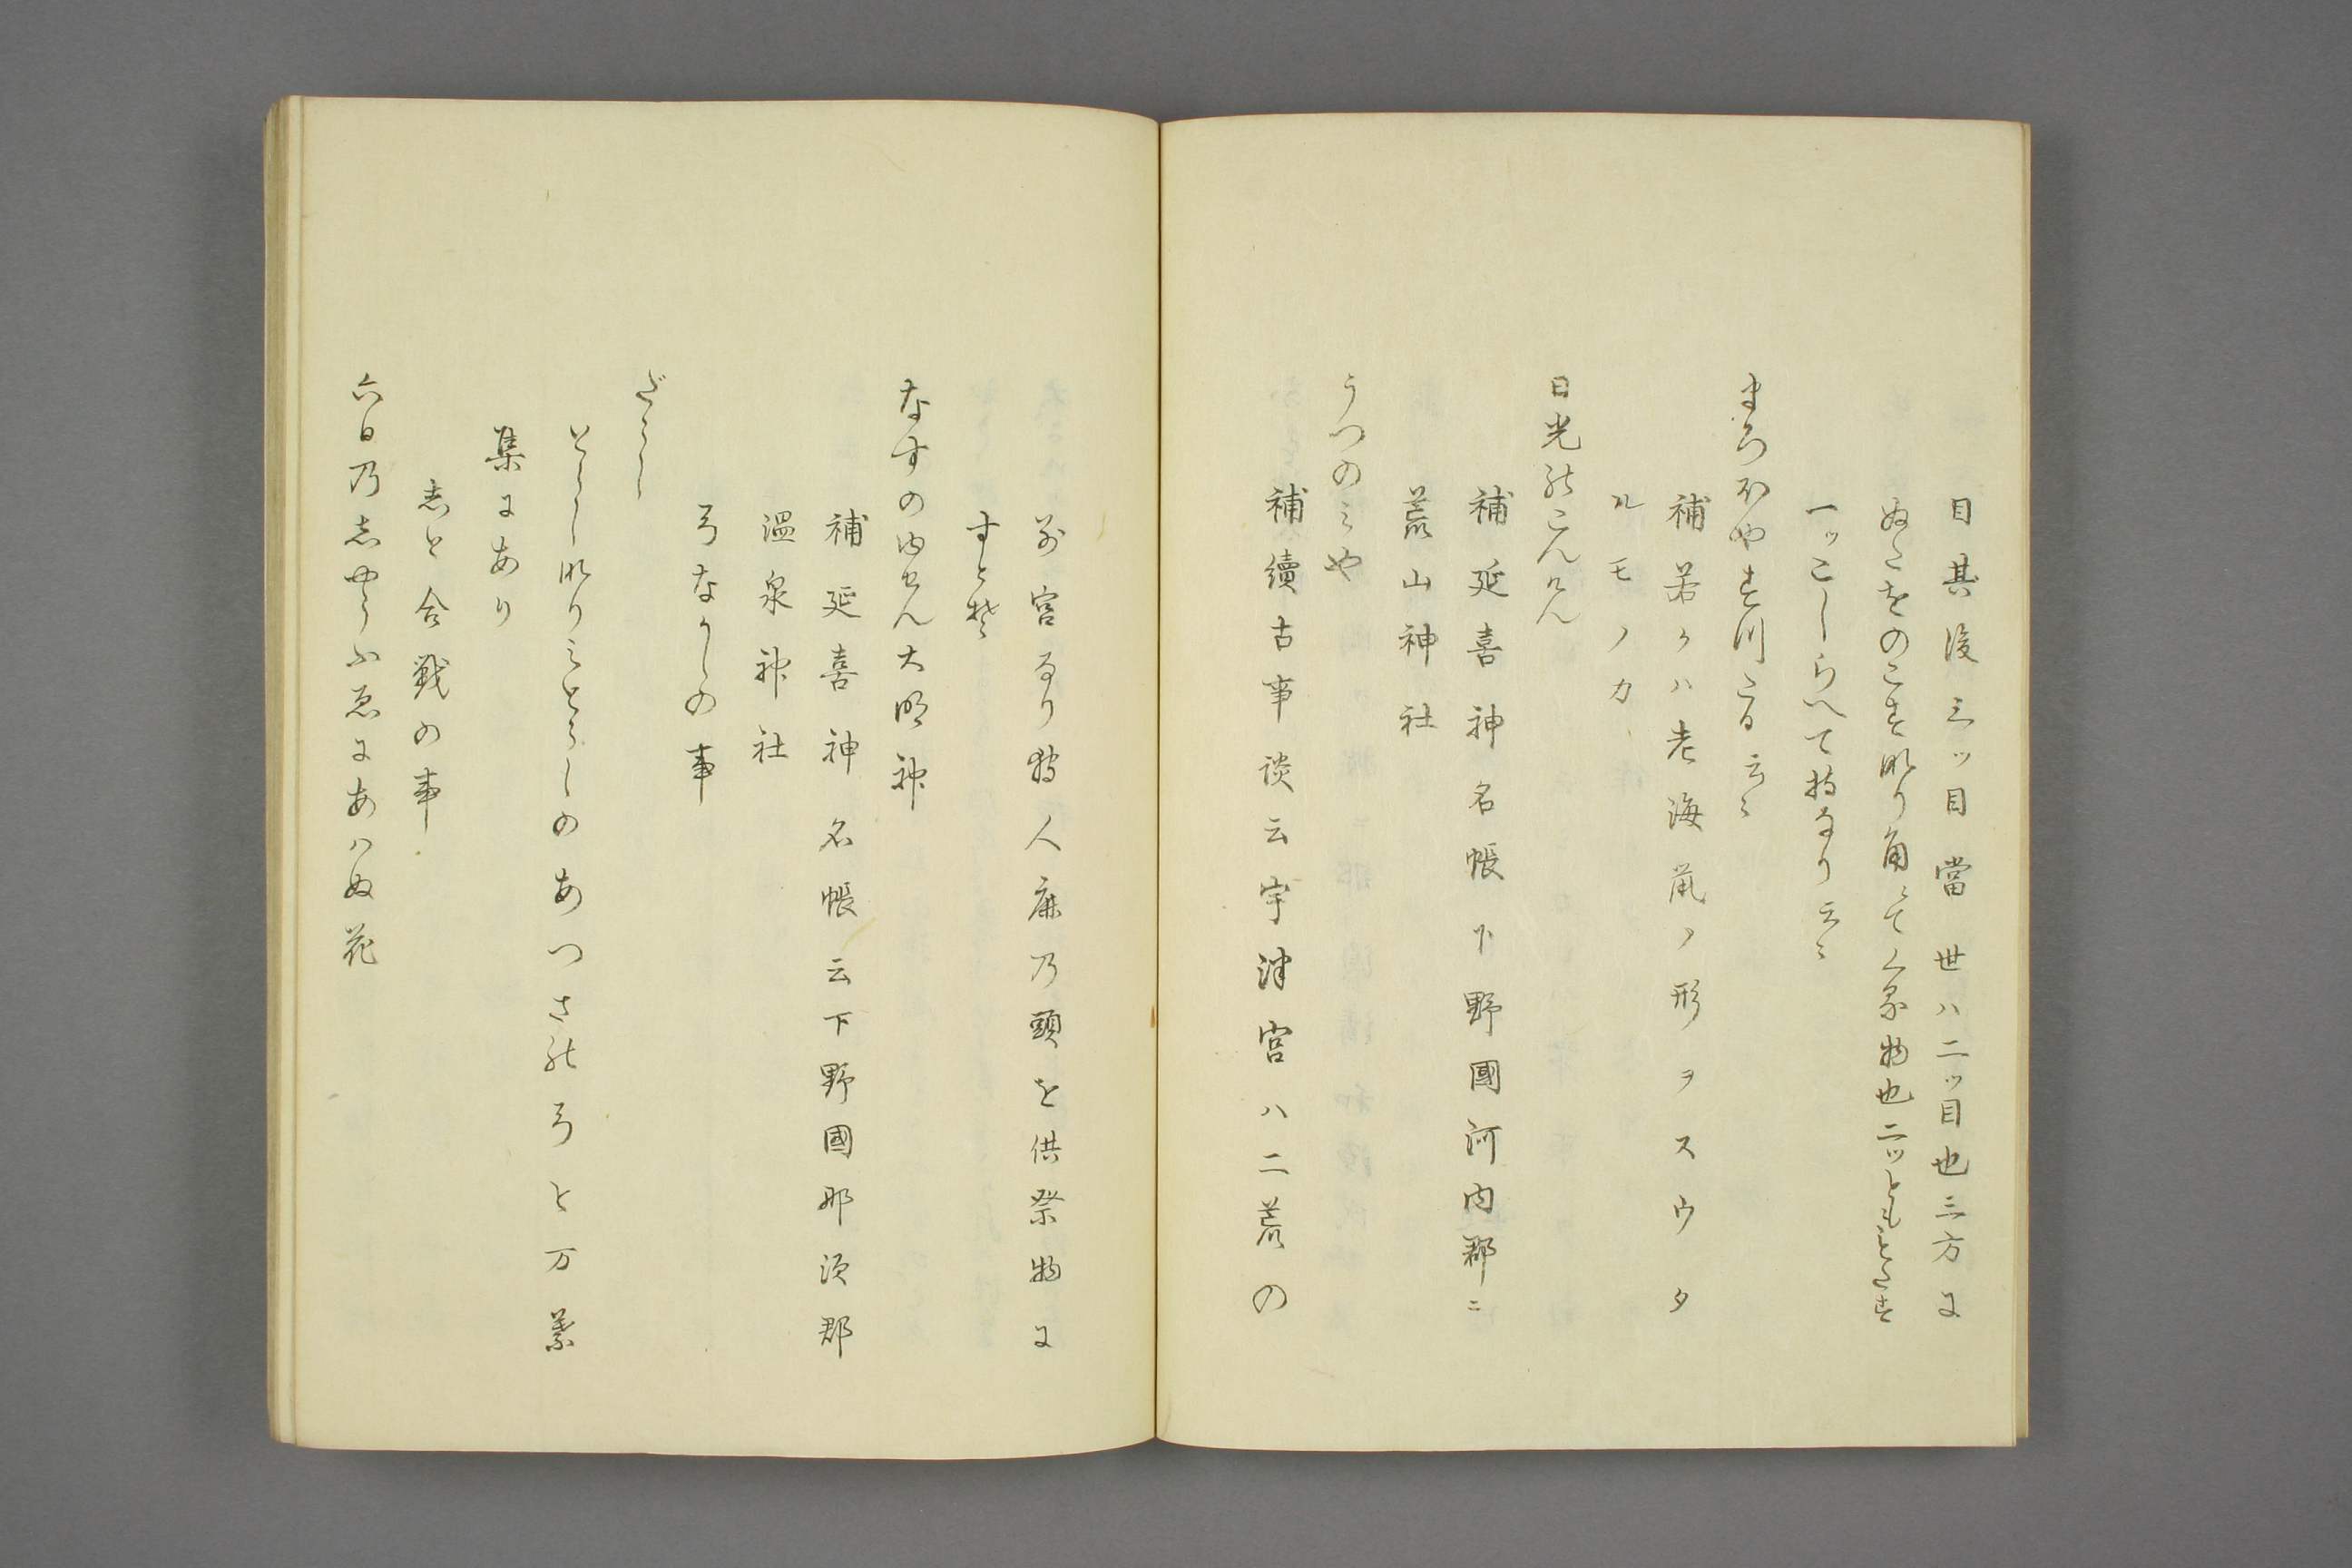 目其後三ッ目當世ハ二ッ目也三方に
ぬた越のこす斯り角にてくる物也二ッともにこたす
一ッこしらへて持なり云々
まろほやす川こる云々
補若クハ老海鼠ノ形ヲスウタ
ルモノカ
日光能こんけん
補延喜神名帳下野國河内郡ニ
荒山神社
うつのミや
補續古事談云宇津宮ハ二荒の
別宮なり狩人鹿乃頭を供祭物に
すとそ
なすのゆせん大明神
補延喜神名帳云下野國那須郡
温泉神社
弓なりしの事
だらし
とらし斯りミとらしのあつさ能弓と万葉
集にあり
志と合戦の事
六日乃志やうふ忍にあハぬ花